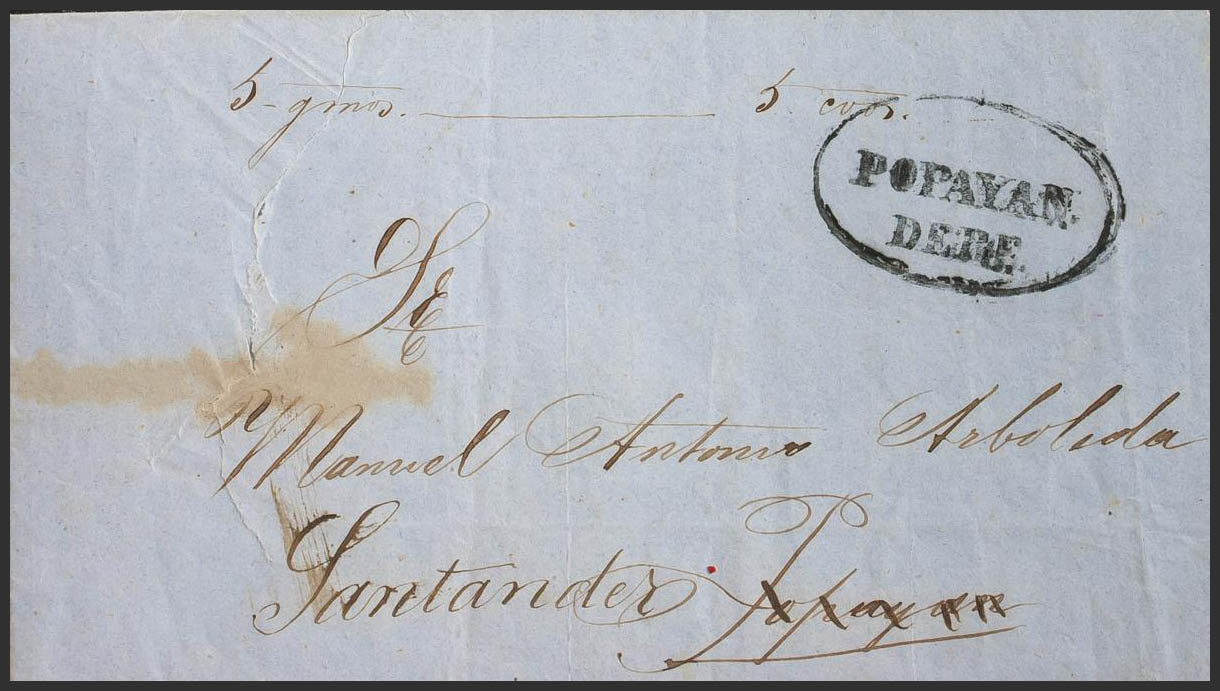 5 gmos. 5 cvos.
POPAYAN.
DE BE.
Sr
Manuel Antonio Arboleda
Santander Popayan